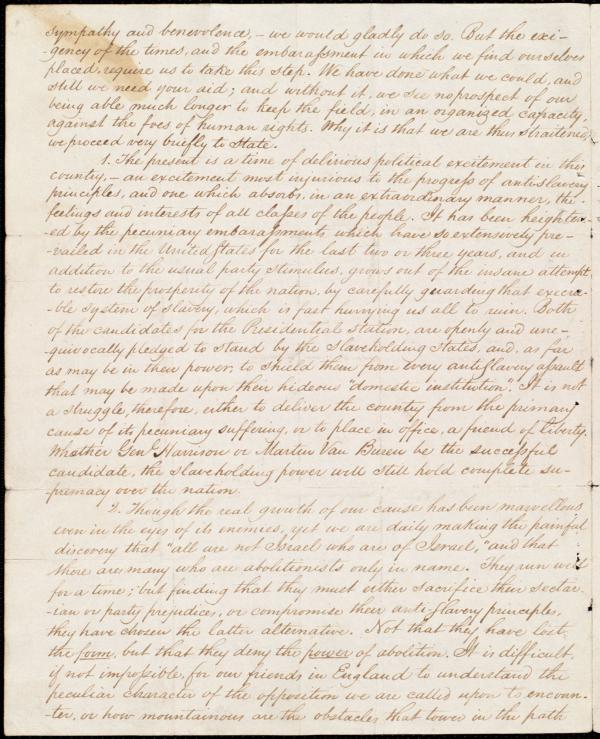 sympathy and benevolence, – we would gladly do so. But the exi-
gency of the times, and the embarassment in which we find ourselves
placed, require us to take this step. We have done what we could, and
still we need your aid; and without it, we see no prospect of our
being able much longer to keep the field, in an organized capacity,
against the foes of human rights. Why it is that we are thus straitened,
we proceed very briefly to state.
1. The present is a time of delirious political excitement in this
country, – an excitement most injurious to the progress of antislavery
principles, and one which absorbs, in an extraordinary manner, the
feelings and interests of all classes of the people. It has been heighten-
-ed by the pecuniary embarassments which have so extensively pre-
-vailed in the United States for the last two or three years, and in
addition to the usual party stimulus, grows out of the insane attempt
to restore the prosperity of the nation, by carefully guarding that execra-
-ble system of slavery, which is fast hurrying us all to ruin. Both
of the candidates for the Presidential station, are openly and une-
-quivocally pledged to stand by the Slaveholding States, and, as far
as may be in their power, to shield them from every antislavery assault
that may be made upon their hideous "domestic institution". It is not
a struggle, therefore, either to deliver the country from the primary
cause of its pecuniary suffering, or to place in office, a friend of liberty.
Whether Genl. Harrison or Martin Van Buren be the successful
candidate, the slaveholding power will still hold complete su-
-premacy over the nation.
2. Though the real growth of our cause has been marvellous
even in the eyes of its enemies, yet we are daily making the painful
discovery that "all are not Israel who are of Israel," and that
there are many who are abolitionists only in name. They run well
for a time; but finding that they must either sacrifice their sectar-
-ian or party prejudice, or compromise their anti-slavery principle,
they have chosen the latter alternative. Not that they have lost
the form, but that they deny the power of abolition. It is difficult,
if not impossible, for our friends in England to understand the
peculiar character of the opposition we are called upon to encoun-
-ter, or how mountainous are the obstacles that tower in the path